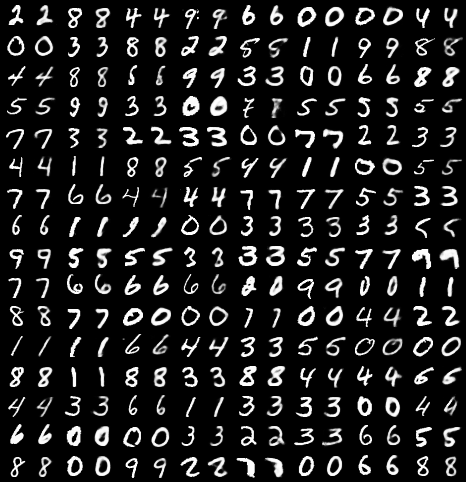 2 2 8 8 4 4 9 9 6 6 0 0 0 0 4 4
0 0 3 3 8 8 2 2 5 5 1 1 9 9 8 8
4 4 8 8 6 6 9 9 3 3 0 0 6 6 8 8
5 5 9 9 3 3 0 0 7 8 5 5 5 5 5 5
7 7 3 3 2 2 3 3 0 0 7 7 2 2 3 3
4 4 1 1 8 8 5 5 4 4 1 1 0 0 5 5
7 7 6 6 4 4 4 4 7 7 7 7 5 5 3 3
6 6 1 1 9 9 0 0 3 3 3 3 3 3 5 5
9 9 5 5 5 5 3 3 3 3 5 5 7 7 9 9
7 7 6 6 6 6 6 6 2 0 9 9 0 0 1 1
8 8 7 7 0 0 0 0 7 7 0 0 4 4 2 2
1 1 1 1 6 6 4 4 3 3 5 5 0 0 0 0
8 8 1 1 8 8 3 3 8 8 4 4 4 4 6 6
4 4 3 3 6 6 1 1 3 3 3 3 0 0 4 4
6 6 0 0 0 0 3 3 2 2 3 3 6 6 5 5
8 8 0 0 9 9 2 2 7 7 0 0 6 6 8 8